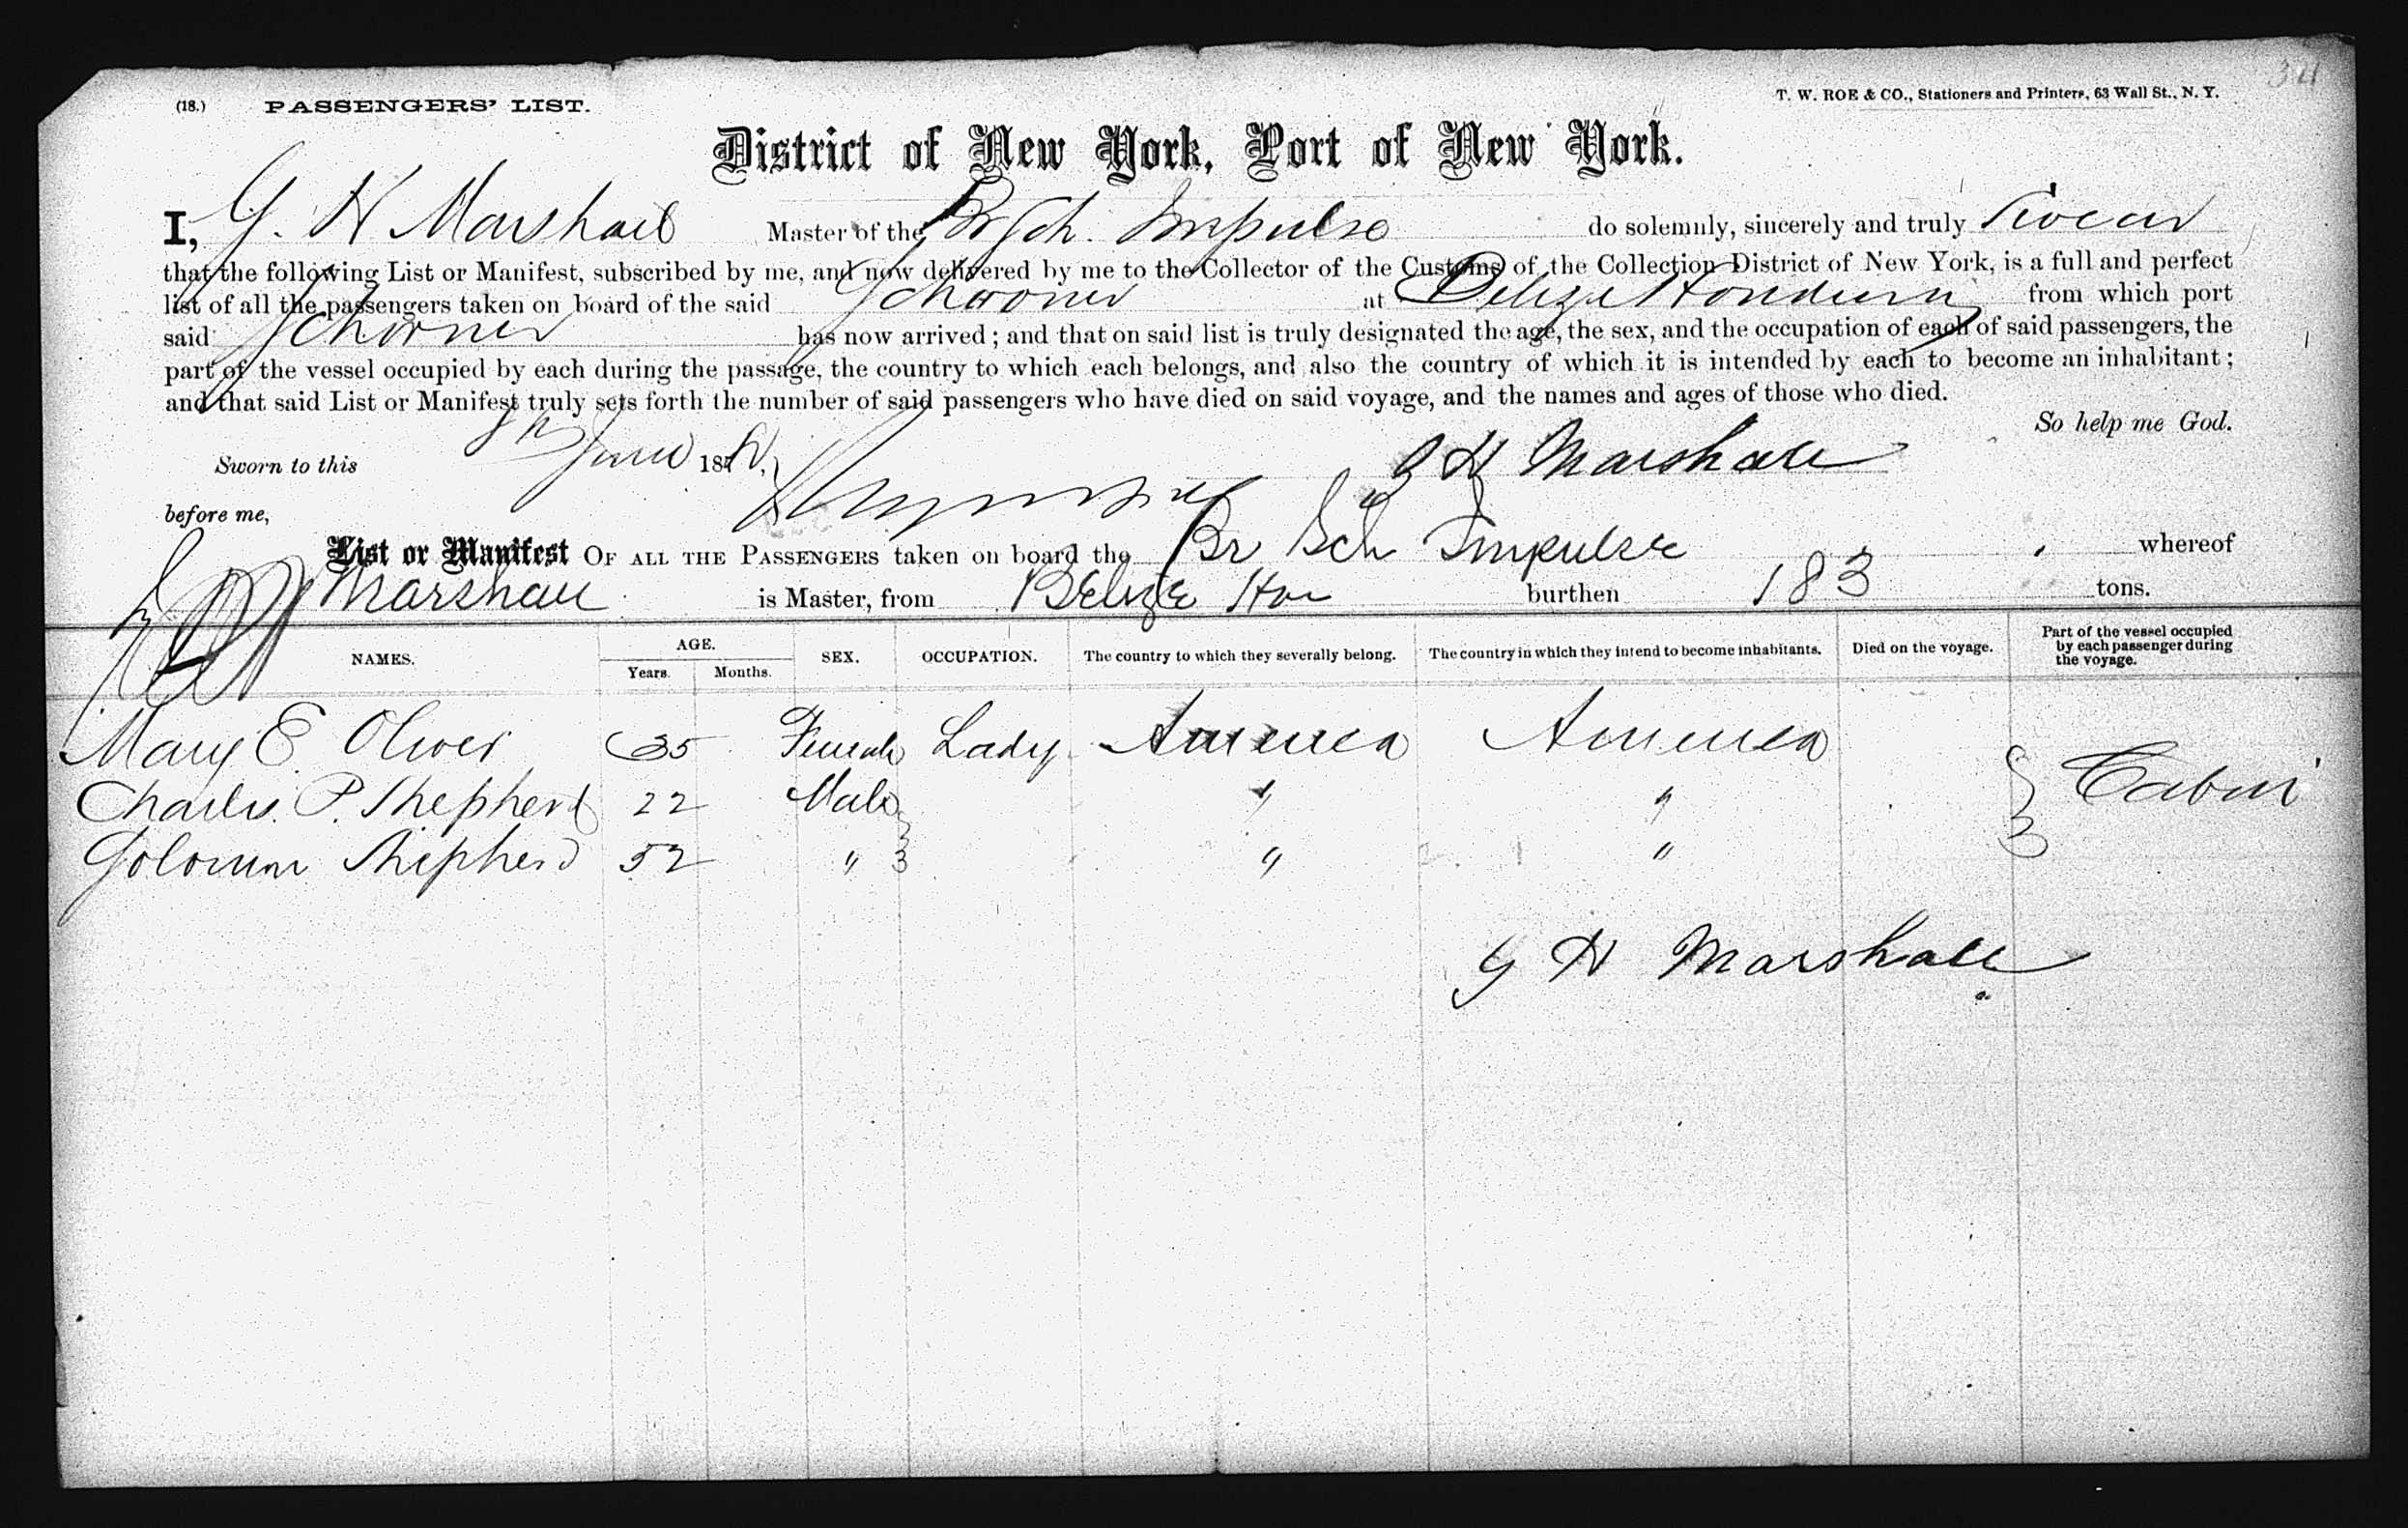 (18.) PASSENGERS' LIST. T. W. ROE & CO., Stationers and Printers, 63 Wall St., N. Y.
District of New York, Port of New York.
I, G. H Marshall Master of the Br Sch. Impulse do solemnly, sincerely and truly Swear
that the following List or Manifest, subscribed by me, and now delivered by me to the Collector of the Customs of the Collection District of New York, is a full and perfect
list of all the passengers taken on board of the said Schooner at Belize Honduras from which port
said Schooner has now arrived; and that on said list is truly designated the age, the sex, and the occupation of each of said passengers, the
part of the vessel occupied by each during the passage, the country to which each belongs, and also the country of which it is intended by each to become an inhabitant;
and that said List or Manifest truly sets forth the number of said passengers who have died on said voyage, and the names and ages of those who died.
So help me God.
Sworn to this 8th June 18 G H Marshall
before me,
List or Manifest OF ALL THE PASSENGERS taken on board the Br Sch Impulse whereof
Marshall is Master, from Belize Hon burthen 183 tons.
NAMES. AGE. Years. Months. SEX. OCCUPATION. The country to which they severally belong. The country in which they intend to become inhabitants. Died on the voyage. Part of the vessel occupied by each passenger during the voyage.
Mary E. Oliver 35 Female Lady America America
Charles. P. Shepherd 22 Male " " Cabin
Solomon Shepherd 52 " " "
G H Marshall